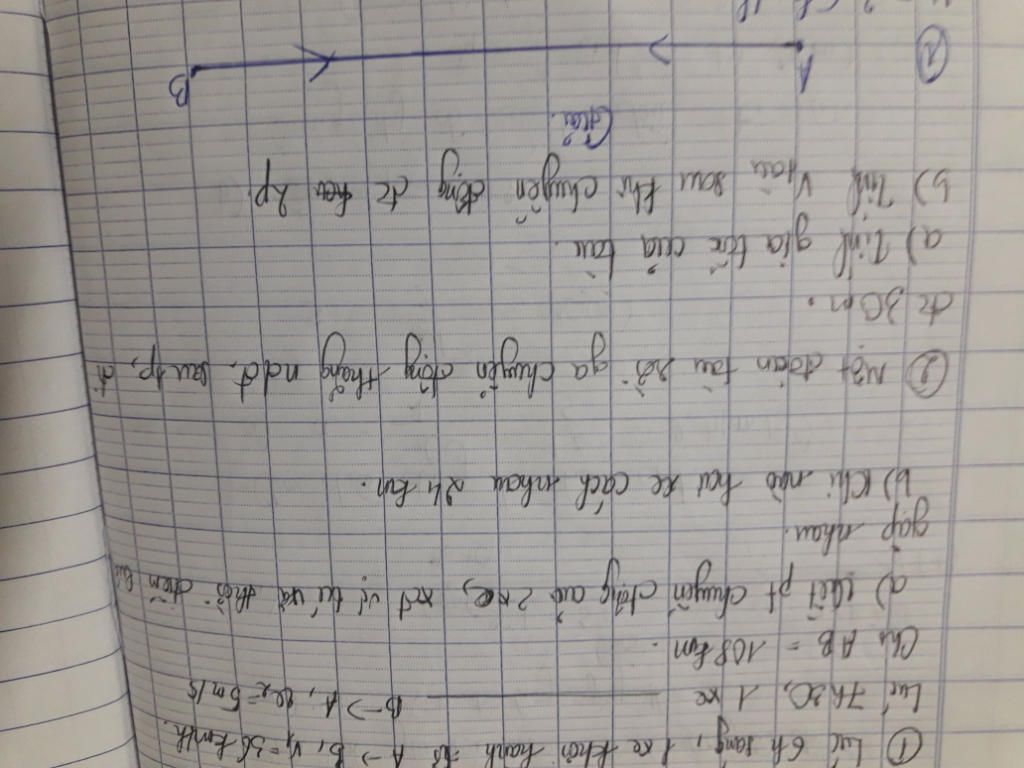 ① Lúc 6h sáng, 1 xe khởi hành từ A → B, v₁ = 36 km/h.
Lúc 7h30, 1 xe ——— B → A, v₂ = 5 m/s
Cho AB = 108 km.
a) Viết pt chuyển động của 2 xe, xđ vị trí và thời điểm lúc
gặp nhau.
b) Khi nào hai xe cách nhau 24 km.
② Một đoàn tàu rời ga chuyển động thẳng ndđ. sau 1p, đi
đc 30m.
a) Tính gia tốc của tàu.
b) Tính v tàu sau khi chuyển động đc 2p
Giải.
①
A B